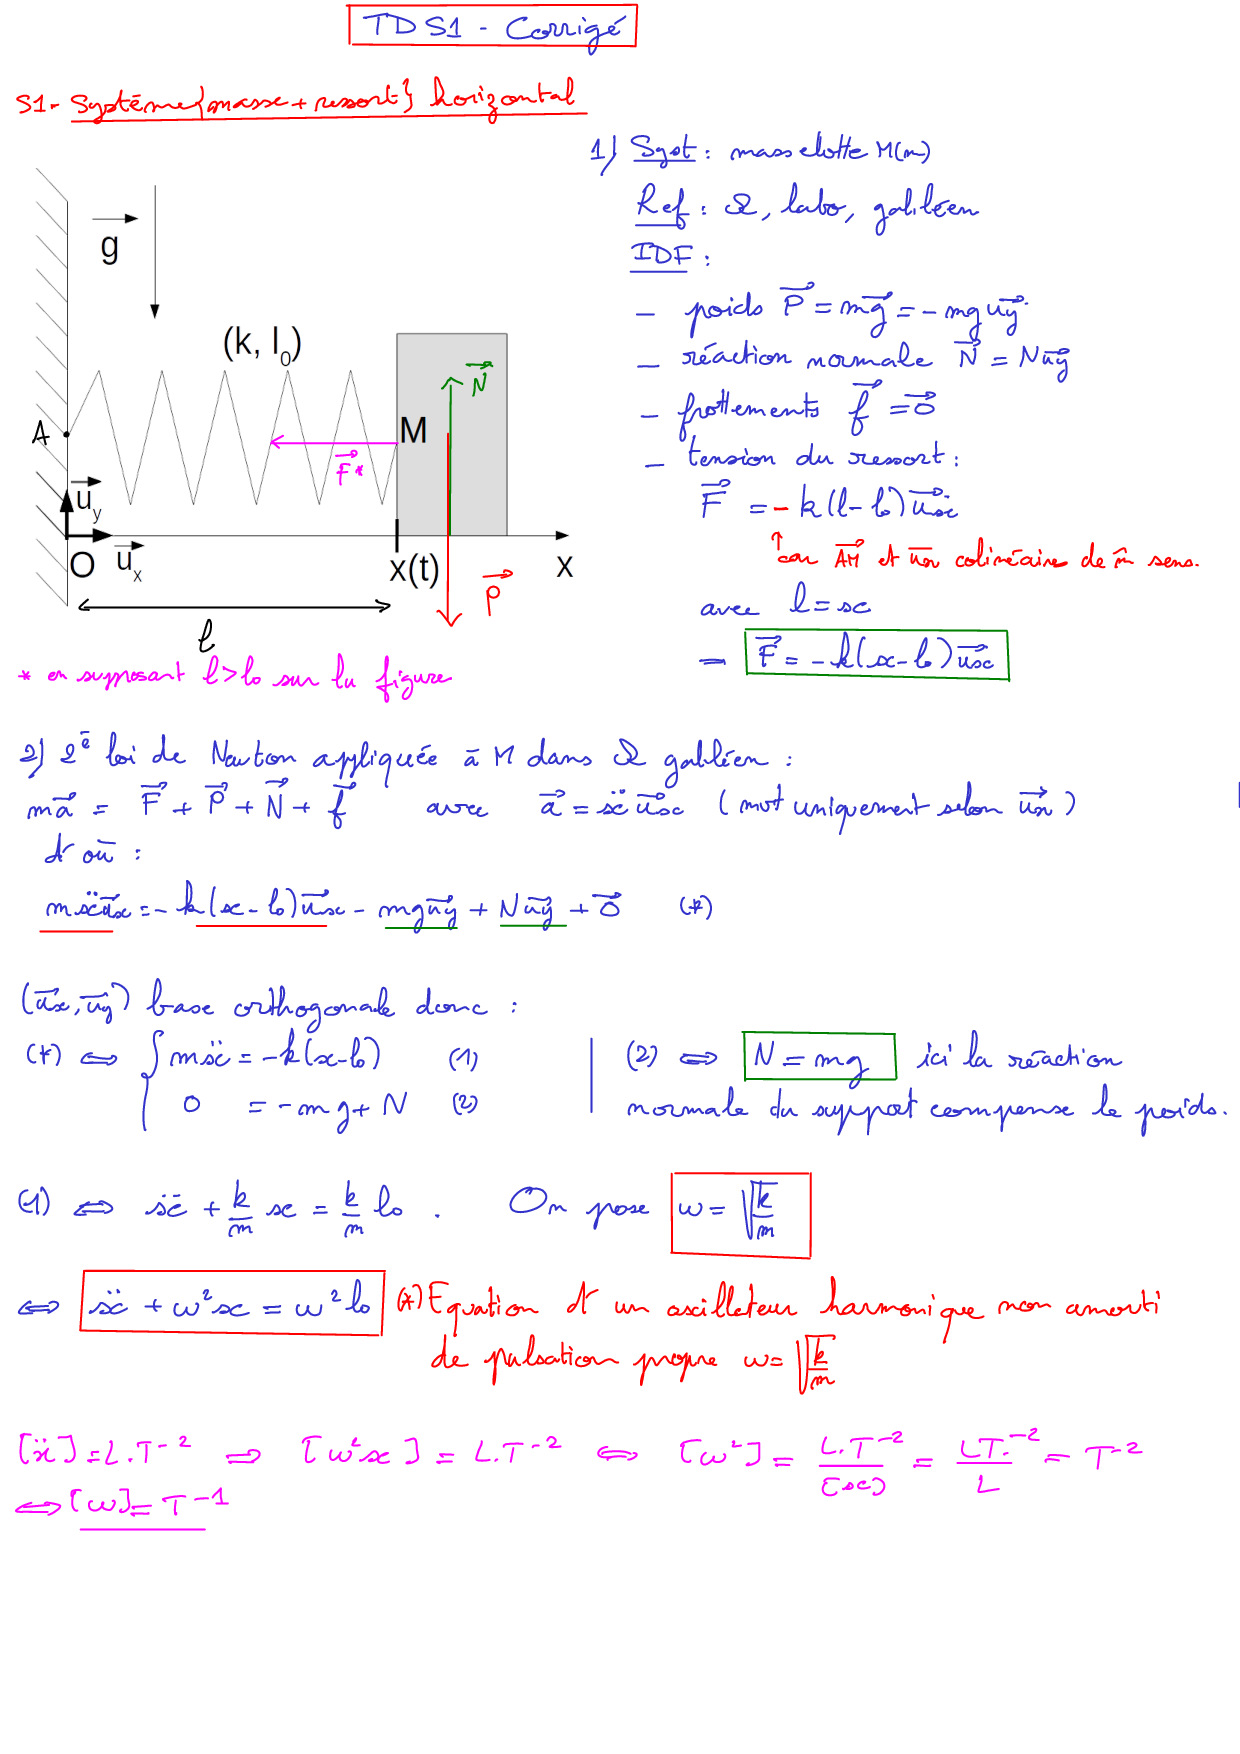 TD S1 - Corrigé
S1- Système {masse + ressort} horizontal
1) Syst : masselotte M(m)
Ref : R, labo, galiléen
IDF :
- poids P⃗ = mg⃗ = -mg u⃗y
- réaction normale N⃗ = N u⃗y
- frottements f⃗ = 0⃗
- tension du ressort :
F⃗ = - k(l-l0) u⃗x
↑ car AM⃗ et u⃗x colinéaire de m̂ sens.
avec l = x
- F⃗ = -k(x-l0) u⃗x
g⃗
(k, l0)
N⃗
A
M
F⃗*
u⃗y
O
u⃗x
x(t)
P⃗
x
l
* en supposant l>l0 sur la figure
2) 2è loi de Newton appliquée à M dans R galiléen :
ma⃗ = F⃗ + P⃗ + N⃗ + f⃗ avec a⃗ = ẍ u⃗x (mvt uniquement selon u⃗x)
d'où :
mẍu⃗x = - k(x-l0)u⃗x - mgu⃗y + Nu⃗y + 0⃗ (*)
(u⃗x, u⃗y) base orthogonale donc :
(*) ⇔ { mẍ = -k(x-l0) (1)
0 = -mg + N (2)
(2) ⇔ N = mg ici la réaction
normale du support compense le poids.
(1) ⇔ ẍ + k/m x = k/m l0 . On pose ω = √(k/m)
⇔ ẍ + ω²x = ω² l0 (*) Equation d'un oscillateur harmonique non amorti
de pulsation propre ω = √(k/m)
[ẍ] = L.T⁻² ⇒ [ω²x] = L.T⁻² ⇔ [ω²] = L.T⁻²/[x] = LT.⁻²/L = T⁻²
⇔ [ω] = T⁻¹